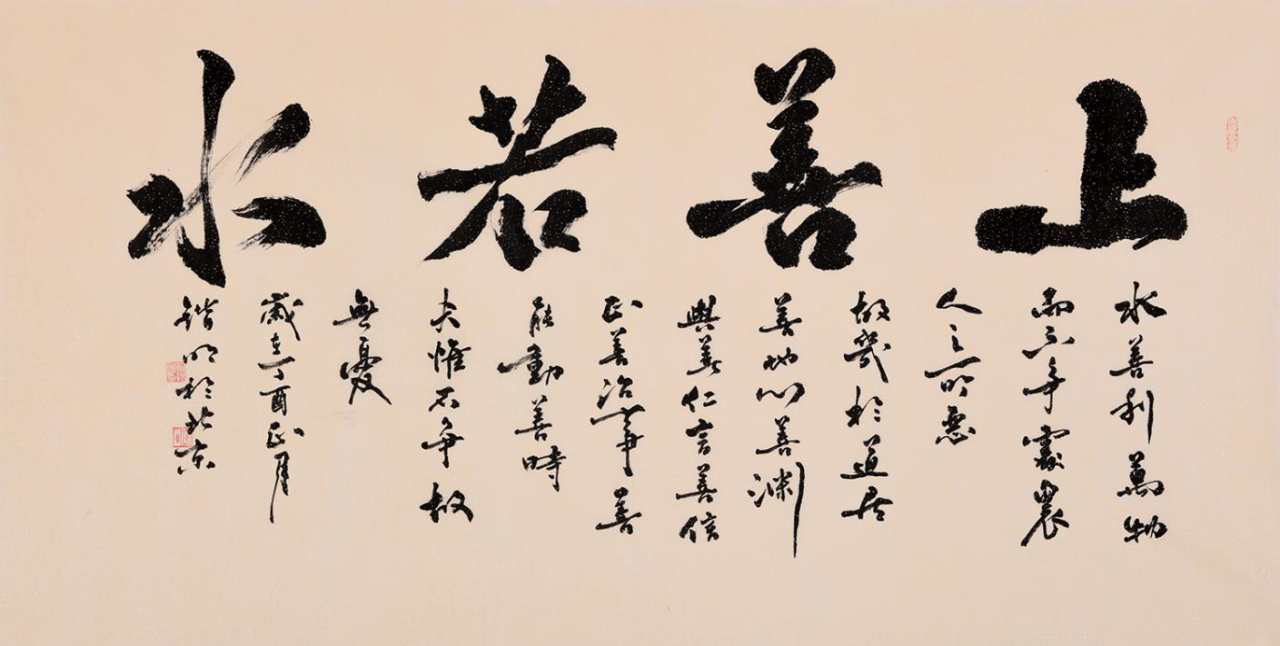 上善若水
水善利萬物
而不爭處衆
人之所惡
故幾於道居
善地心善渊
與善仁言善信
正善治事善
能動善時
夫惟不爭故
無憂
歲在丁酉正月
锴明於北京